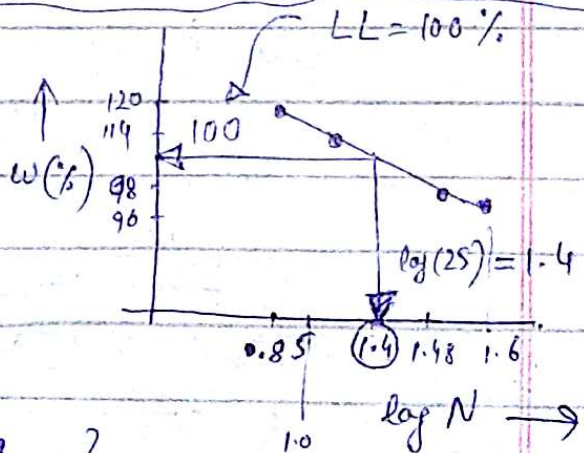 LL = 100 %
120
114
100
w(%)
98
96
log(25) = 1.4
0.85
1.4
1.48
1.6
log N
1.0
?